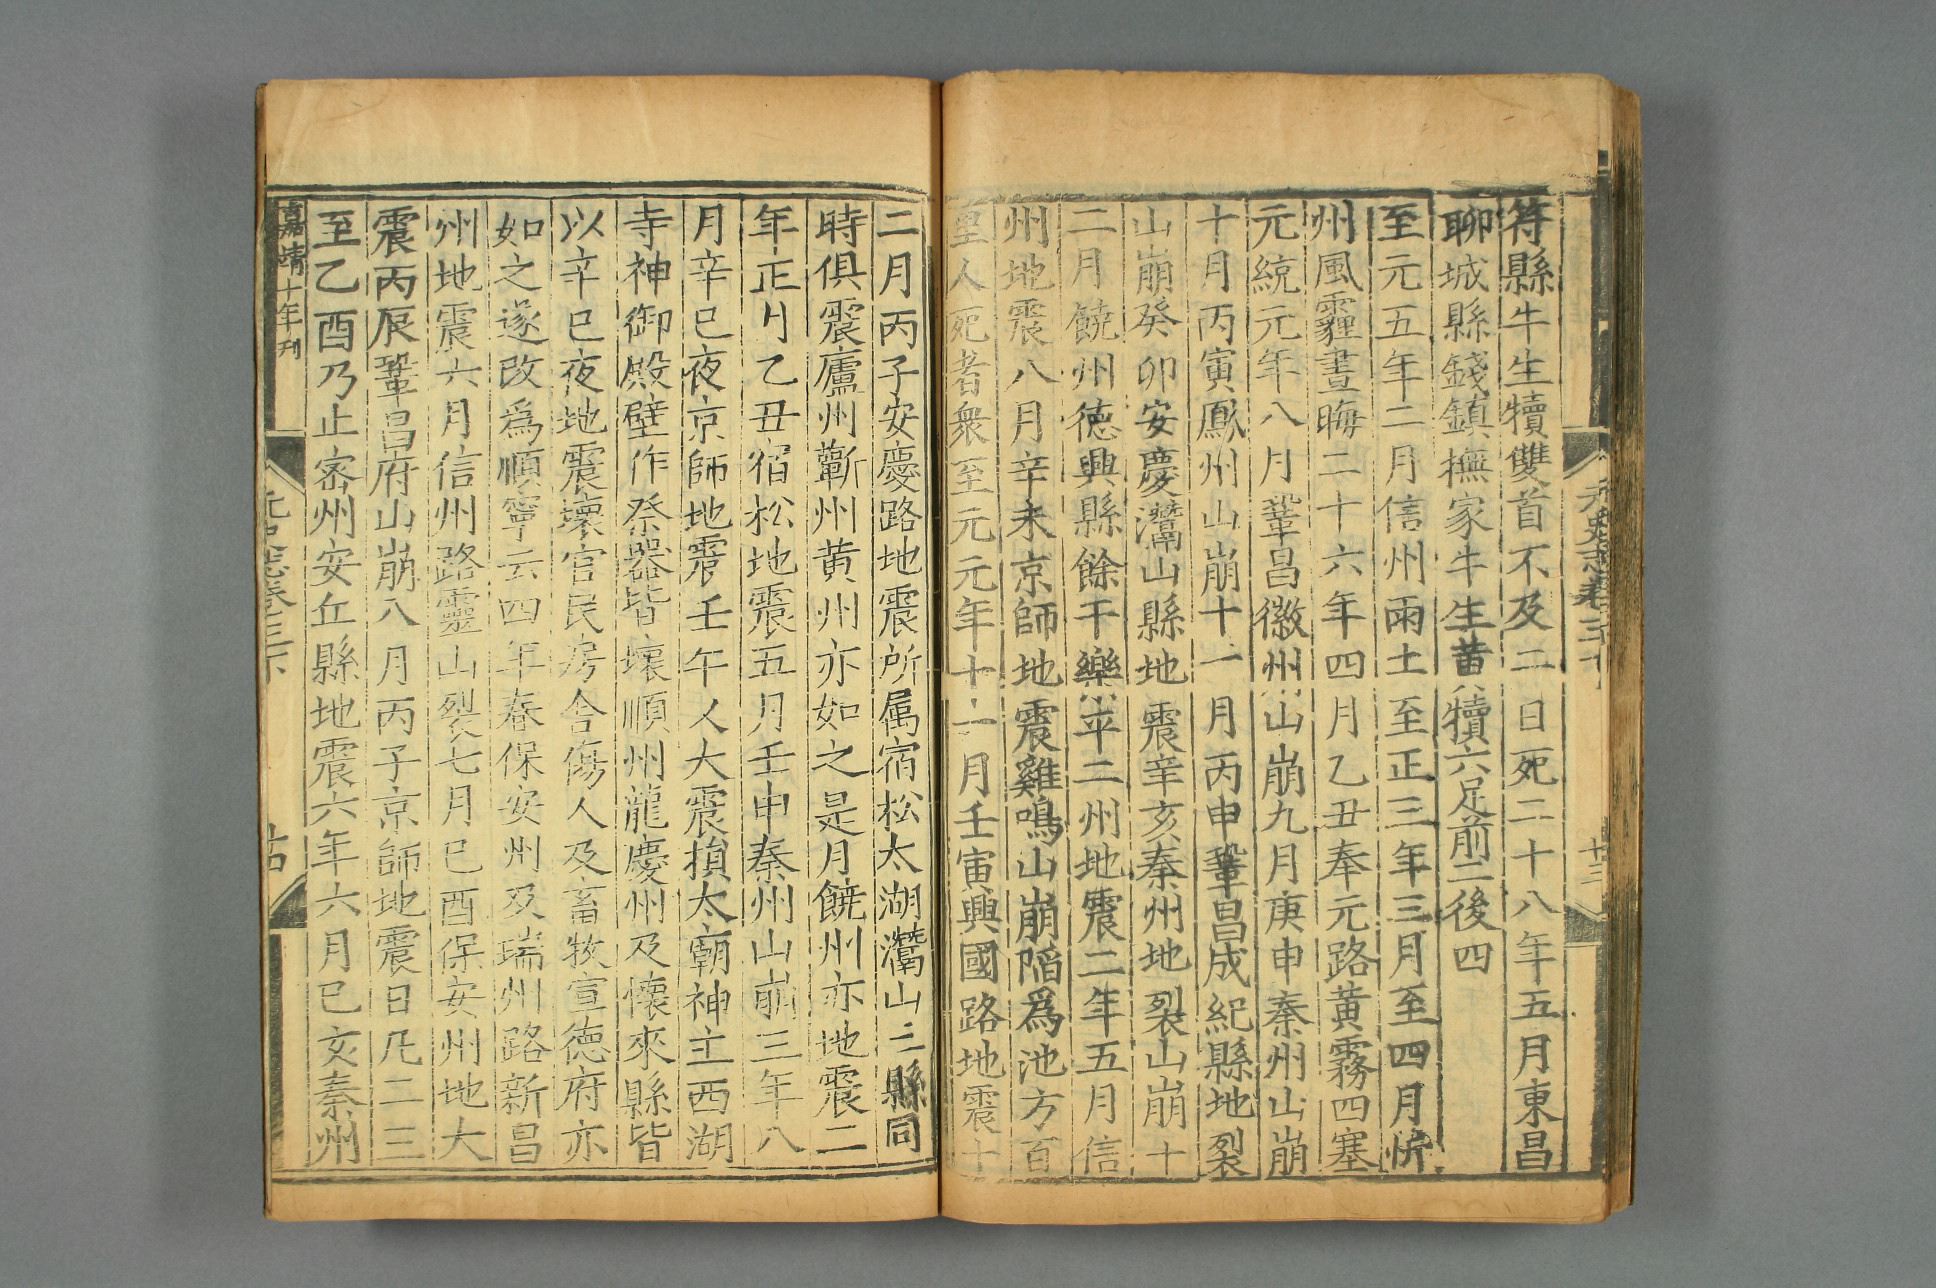 符縣牛生犢雙首不及二日死二十八年五月東昌
聊城縣錢鎮撫家牛生黄犢六足前二後四
至元五年二月信州雨土至正三年三月至四月忻
州風霾晝晦二十六年四月乙丑奉元路黄霧四塞
元統元年八月鞏昌徽州山崩九月庚申秦州山崩
十月丙寅鳳州山崩十一月丙申鞏昌成紀縣地裂
山崩癸卯安慶灊山縣地震辛亥秦州地裂山崩十
二月饒州德興縣餘干樂平二州地震二年五月信
州地震八月辛未京師地震雞鳴山崩陷爲池方百
里人死者衆至元元年十一月壬寅興國路地震十
二月丙子安慶路地震所属宿松太湖灊山三縣同
時俱震廬州蘄州黄州亦如之是月饒州亦地震二
年正月乙丑宿松地震五月壬申秦州山崩三年八
月辛巳夜京師地震壬午又大震損太廟神主西湖
寺神御殿壁仆祭器皆壞順州龍慶州及懷來縣皆
以辛巳夜地震壞官民房舍傷人及畜牧宣德府亦
如之遂改爲順寧云四年春保安州及瑞州路新昌
州地震六月信州路靈山裂七月己酉保安州地大
震丙辰鞏昌府山崩八月丙子京師地震日凡二三
至乙酉乃止密州安丘縣地震六年六月己亥秦州
嘉靖十年刊
元史志卷三下
十四